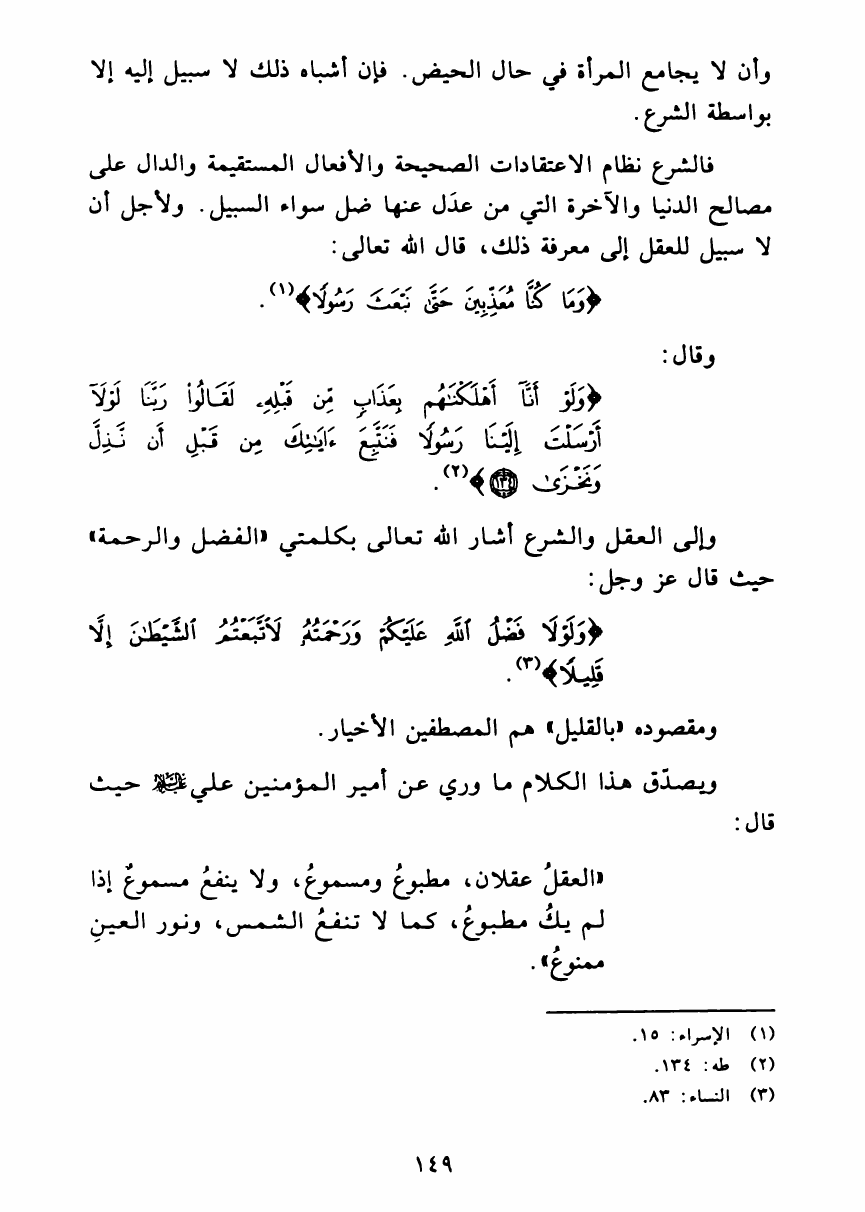 وأن لا يجامع المرأة في حال الحيض. فإن أشباه ذلك لا سبيل إليه إلا
بواسطة الشرع.
فالشرع نظام الاعتقادات الصحيحة والأفعال المستقيمة والدال على
مصالح الدنيا والآخرة التي من عدَل عنها ضل سواء السبيل. ولأجل أن
لا سبيل للعقل إلى معرفة ذلك، قال الله تعالى:
﴿وَمَا كُنَّا مُعَذِّبِينَ حَتَّىٰ نَبْعَثَ رَسُولًا﴾(١).
وقال:
﴿وَلَوْ أَنَّآ أَهْلَكْنَٰهُم بِعَذَابٍ مِّن قَبْلِهِۦ لَقَالُوا۟ رَبَّنَا لَوْلَآ
أَرْسَلْتَ إِلَيْنَا رَسُولًا فَنَتَّبِعَ ءَايَٰتِكَ مِن قَبْلِ أَن نَّذِلَّ
وَنَخْزَىٰ ١٣٤﴾(٢).
وإلى العقل والشرع أشار الله تعالى بكلمتي «الفضل والرحمة»
حيث قال عز وجل:
﴿وَلَوْلَا فَضْلُ ٱللَّهِ عَلَيْكُمْ وَرَحْمَتُهُۥ لَٱتَّبَعْتُمُ ٱلشَّيْطَٰنَ إِلَّا
قَلِيلًا﴾(٣).
ومقصوده «بالقليل» هم المصطفين الأخيار.
ويصدّق هذا الكلام ما وري عن أمير المؤمنين علي عليه السلام حيث
قال:
«العقلُ عقلان، مطبوعُ ومسموعُ، ولا ينفعُ مسموعٌ إذا
لم يكُ مطبوعُ، كما لا تنفعُ الشمس، ونور العينِ
ممنوعُ».
(١) الإسراء: ١٥.
(٢) طه: ١٣٤.
(٣) النساء: ٨٣.
١٤٩